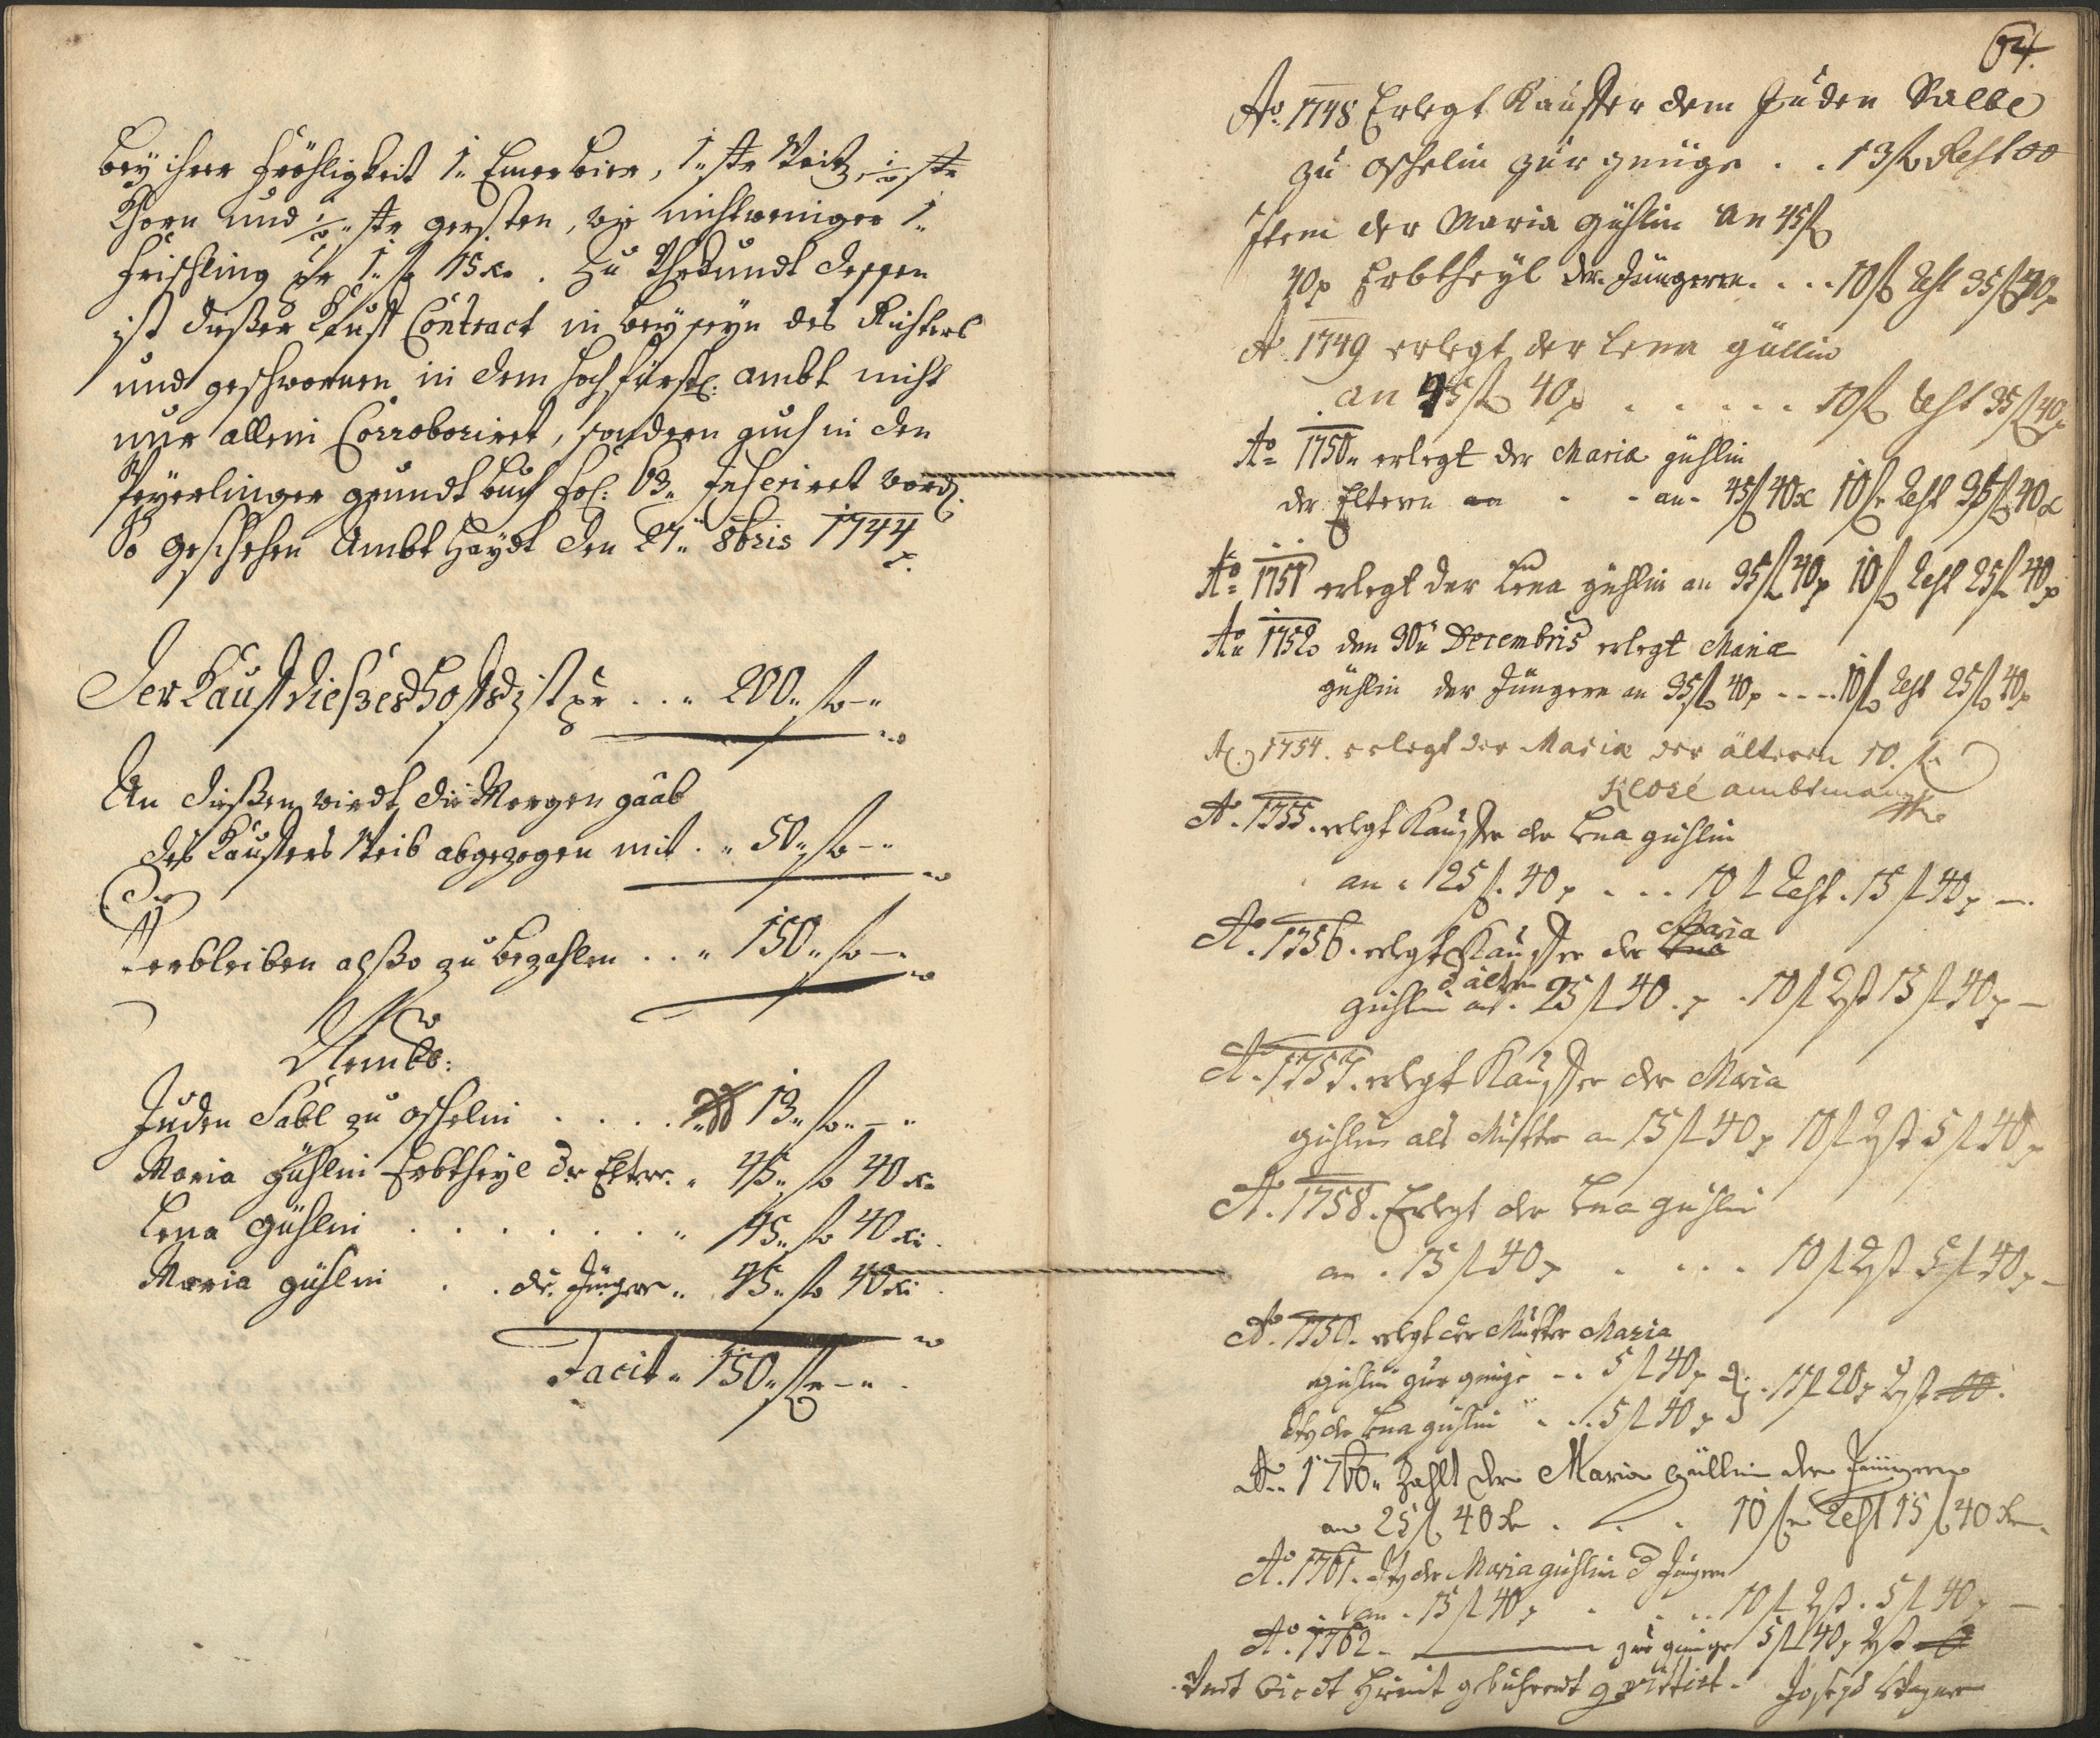 bey ihrer Fröhligkeit 1. Emer bier, 1. str Weitz, 1/2 str
Khorn und 1/2 str gersten, wie nichtweniger 1.
Frischling pr 1. fl 15 xr. Zu Uhrkundt dessen
ist dießer Kauf Contract in beyseyn des Richters
und geschwornen in dem hochfürstl: ambt nicht
nur allein Corroboriret, sondern auch in den
grundt buch fol: 63. Inseriret word.
So geschehen Ambt Haydt den 27. 8bris 1744
Der Kauf dießes Hofs ist pr . . . 200. fl -
An dießen wirdt die Morgen gaab
des Kauffers Weib abgezogen mit . . 50. fl -
Verbleiben alßo zu bezahlen . . . 150. fl -
Juden Sabl zu oschelin . . . . 13. fl -
Maria Gühlin Erbtheyl der Elter. . 45. fl 40 xr
Lena Gühlin . . . . . . . 45. fl 40 xr.
Maria gühlin . . der Jünger. . 45. fl 40 xr.
Facit. 150. fl -
64.
Ao. 1748 Erlegt Kauffer dem Juden Salbe
zu oschelin zur genüge . . 13 fl Rest 00
Item der Maria gühlin an 45 fl
40 x Erbtheyl der Jüngeren . . . . 10 fl Rest 35 fl 40 x
Ao. 1749 erlegt der Lena güllin
an 45 fl 40 x . . . . . . 10 fl Rest 35 fl 40 x
Ao 1750. erlegt der Maria gühlin
der Eltern - - an 45 fl 40 x 10 fl Rest 35 fl 40 x
Ao 1751 erlegt der Lena gühlin an 35 fl 40 x 10 fl Rest 25 fl 40 x
Ao 1752 den 30. Decembris erlegt Maria
gühlin der Jüngern an 35 fl 40 x - - - - 10 fl Rest 25 fl 40 x
Ao. 1754. erlegt der Maria der älteren 10. fl.
Klose ambtmann
Ao. 1755. erlegt Kauffer der Lena gühlin
an . 25 fl. 40 x . . . 10 fl Rest . 15 fl 40 x -
Ao. 1756. erlegt Kauffer der Lena Maria
gühlin d ältern an . 25 fl 40 x . 10 fl Rest 15 fl 40 x -
Ao. 1757. erlegt Kauffer der Maria
gühlin als Mutter an 15 fl 40 x 10 fl Rest 5 fl 40 x
Ao. 1758. Erlegt der Lena gühlin
an . 15 fl 40 x . . . . 10 fl Rest 5 fl 40 x -
Ao. 1759. erlegt der Mutter Maria
gühlin zur genüge - . 5 fl 40 x . 11 fl 20 x Rest 00.
der Lena gühlin . . . 5 fl 40 x
Ao. 1760. Zahlt der Maria Güllin der Jüngern
an 25 fl 40 xr . . . 10 fl Rest 15 fl 40 xr
Ao. 1761. der Maria gühlin d Jüngern
an . 15 fl 40 x . . . . 10 fl Rest . 5 fl 40 x -
Ao. 1762. - zur genüge 5 fl 40 x Rest 0
Undt wirdt hiemit gebührendt quittirt. Joseph Wagner